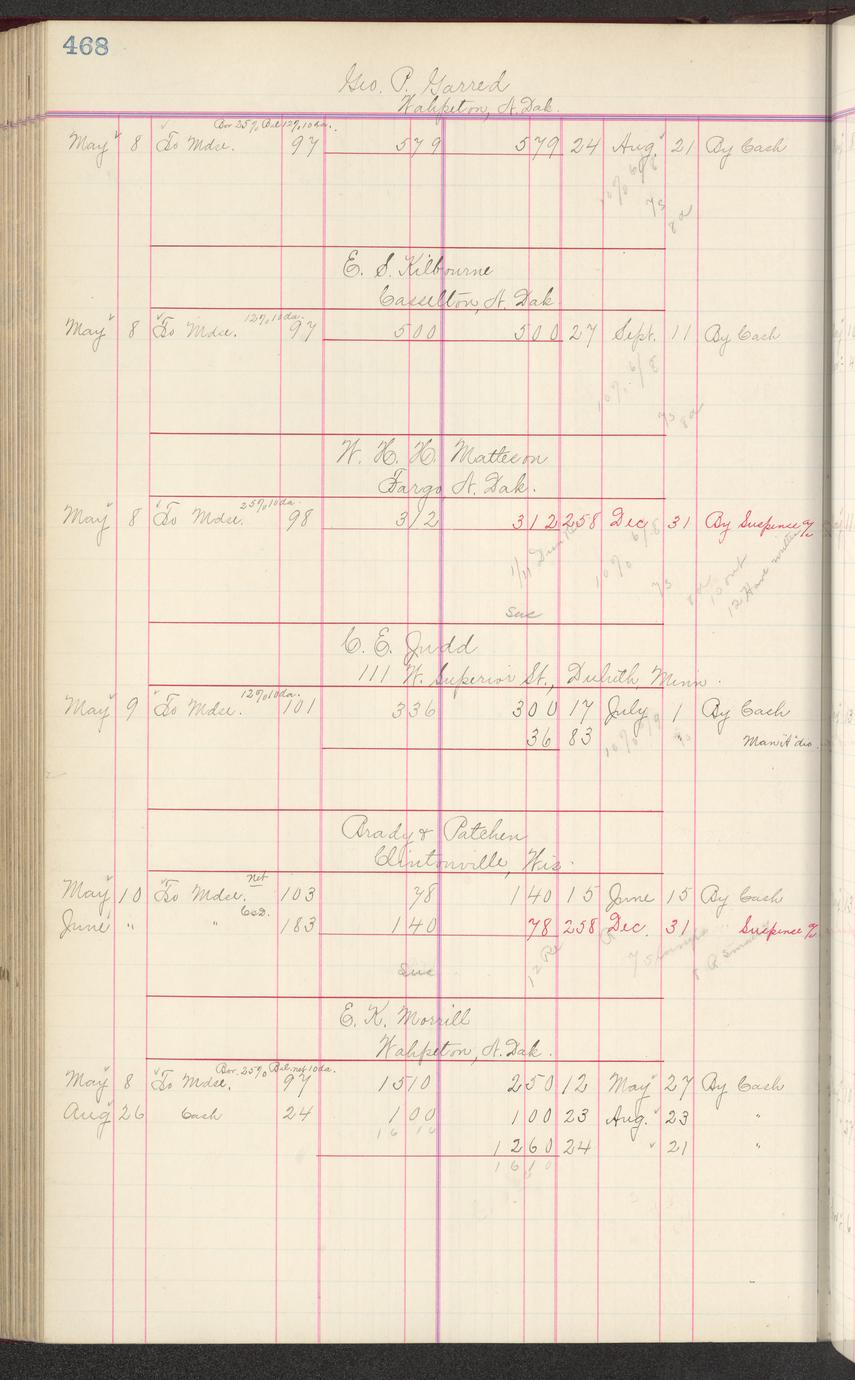 468
Geo. P. Garred
Wahpeton, N. Dak.
Bor 25% Bal 12% 10 da.
May 8 To Mdse. 97 579 579 24 Aug. 21 By Cash
10% 6/8
73
E. S. Kilbourne
Casselton, N. Dak
12% 10 da.
May 8 To Mdse. 97 500 500 27 Sept. 11 By Cash
10% 6/8
73
W. H. H. Matteson
Fargo N. Dak.
25% 10 da.
May 8 To Mdse. 98 312 312 258 Dec 31 By Suspense a/c
10% 6/8
73
12 Have written
Sus
C. E. Judd
111 W. Superior St., Duluth Minn.
12% 10 da.
May 9 To Mdse. 101 336 300 17 July 1 By Cash
36 83 " Man'l't' dis.
Brady & Patchen
Clintonville, Wis.
Net
May 10 To Mdse. 103 78 140 15 June 15 By Cash
C.O.D.
June " " 183 140 78 258 Dec. 31 " Suspense a/c
Sus
E. K. Morrill
Wahpeton, N. Dak.
Bor. 25% Bal. net 10 da.
May 8 To Mdse. 97 1510 250 12 May 27 By Cash
Aug 26 Cash 24 100 100 23 Aug. 23 "
1610
1260 24 " 21 "
1610